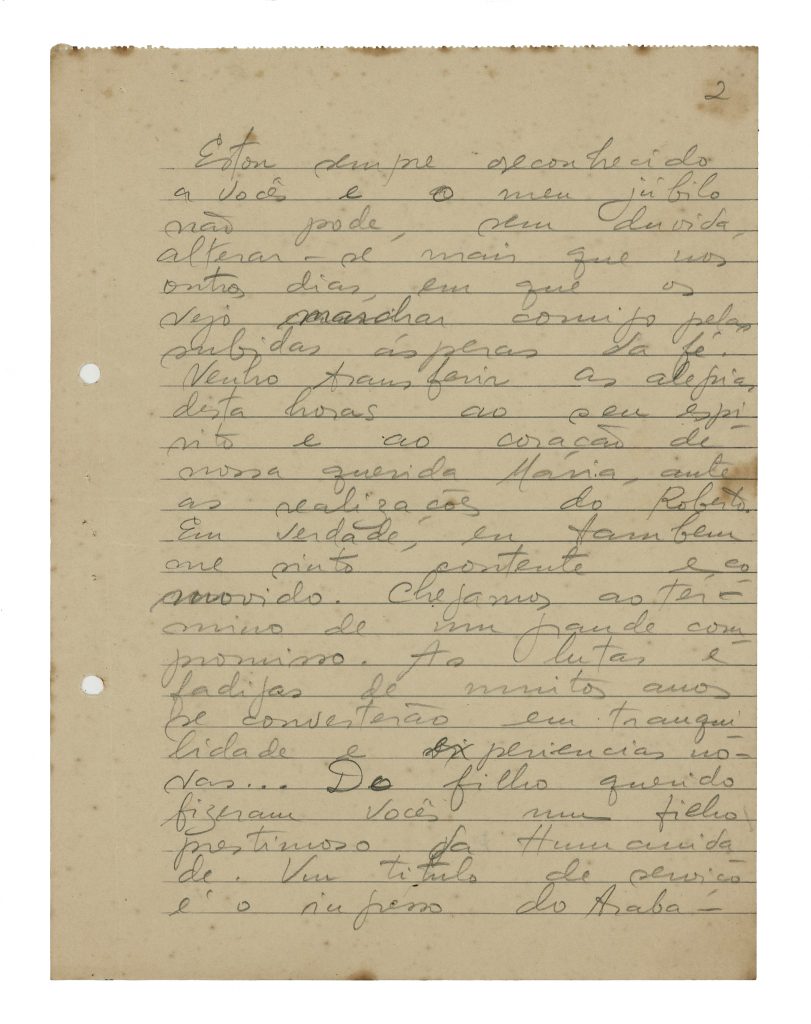 2
Estou sempre reconhecido
a vocês e o meu júbilo
não pode, sem duvida,
alterar-se mais que nos
outros dias, em que os
vejo marchar comigo pelas
subidas ásperas da fé.
Venho transferir as alegrias
desta horas ao seu espí-
rito e ao coração de
nossa querida Mária, ante
as realizações do Roberto.
Em verdade, eu tambem
me sinto contente e co-
movido. Chegamos ao tér-
mino de um grande com
promisso. As lutas e
fadigas de muitos anos
se converterão em tranqui
lidade e experiencias no-
vas... Do filho querido
fizeram vocês um filho
prestimoso da Humanida
de. Um titulo de serviço
é o ingresso do traba-